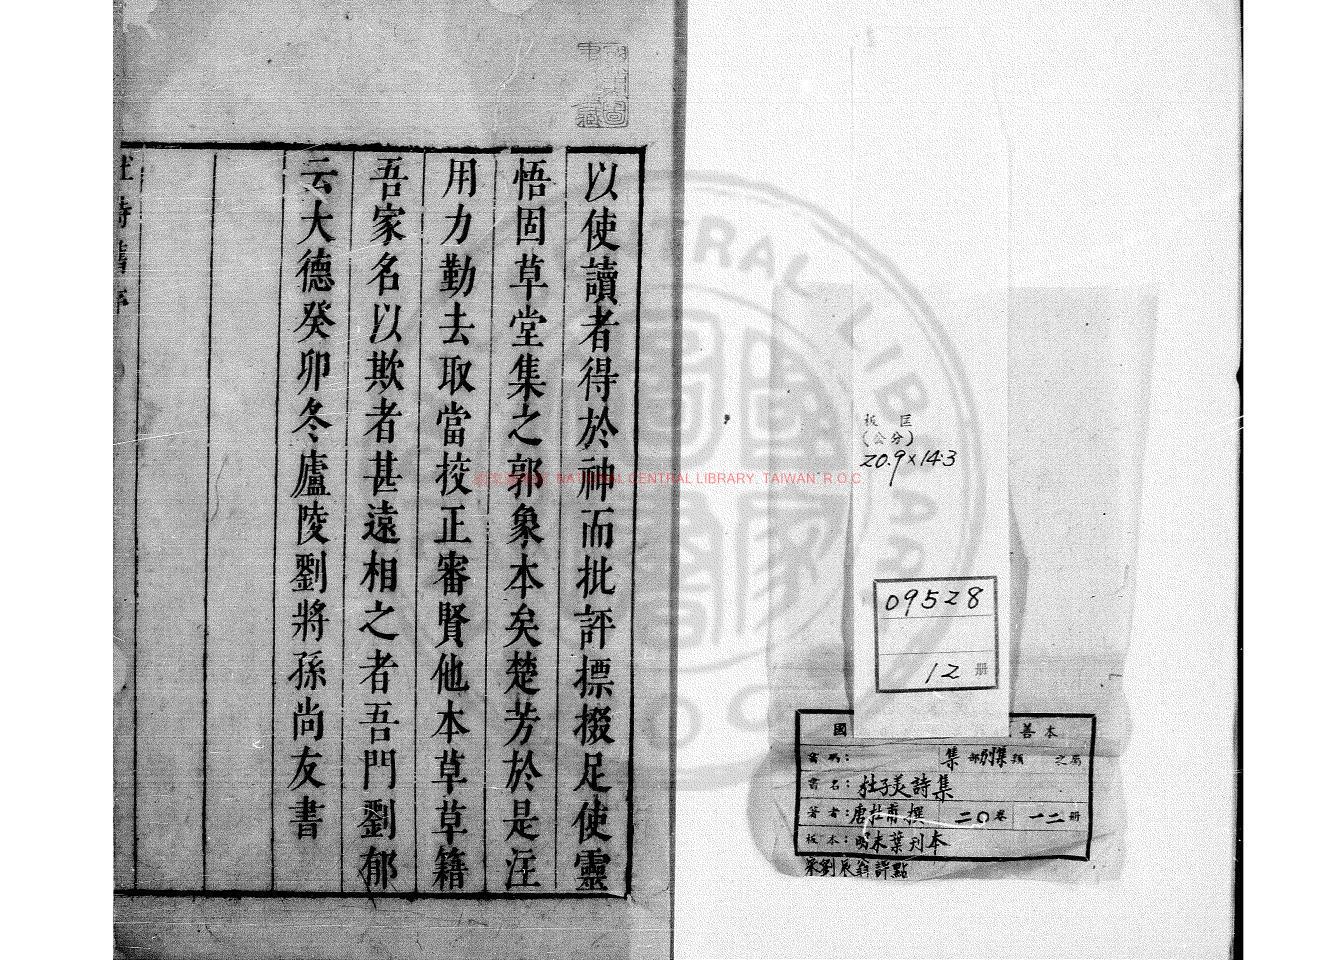 以使讀者得於神而批評摽掇足使靈
悟固草堂集之郭象本矣楚芳於是注
用力勤去取當挍正審賢他本草草籍
吾家名以欺者甚遠相之者吾門劉郁
云大德癸卯冬廬陵劉將孫尚友書
板匡
(公分)
20.9×14.3
09528
12 册
國 善本
集部別集類 之屬
書名：杜子美詩集
著者：唐杜甫撰 二〇卷 一二册
板本：明末葉刊本
宋劉辰翁評點
NATIONAL CENTRAL LIBRARY, TAIWAN R.O.C